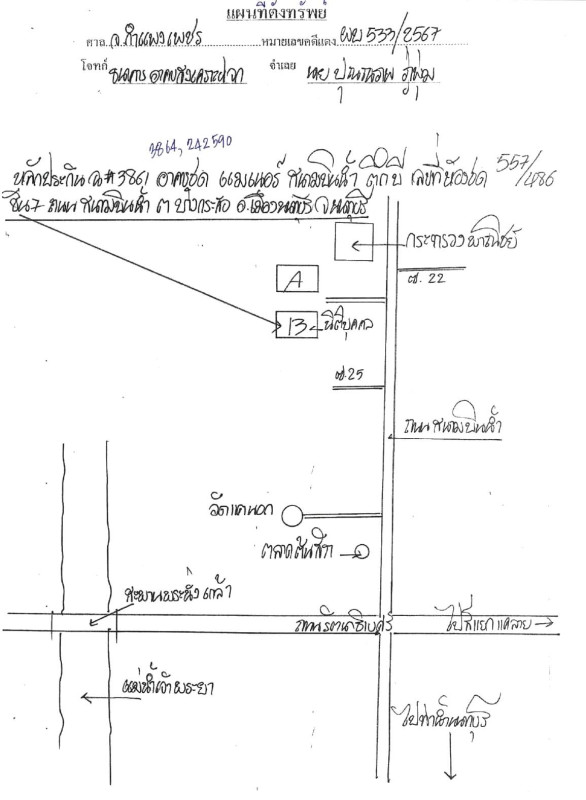 แผนที่ตั้งทรัพย์
ศาล จ.กำแพงเพชร หมายเลขคดีแดง ผบ 533/2567
โจทก์ ธนาคาร อาคารสงเคราะห์ จำเลย นาย
3864, 242590
หลักประกัน อาคารชุด แมนเนอร์ สนามบินน้ำ ตึกบี เลขที่ห้องชุด 557/486
ชั้น 7 ถนน สนามบินน้ำ ต บางกระสอ อ.เมืองนนทบุรี จ.นนทบุรี
กระทรวงพาณิชย์
A
ซ. 22
B
นิติบุคคล
ซ.25
ถนน สนามบินน้ำ
วัดแคนอก
ตลาดต้นสัก
สะพานพระนั่งเกล้า
ถนนรัตนาธิเบศร์
ไปสี่แยกแคลาย
แม่น้ำเจ้าพระยา
ไปท่าน้ำนนทบุรี